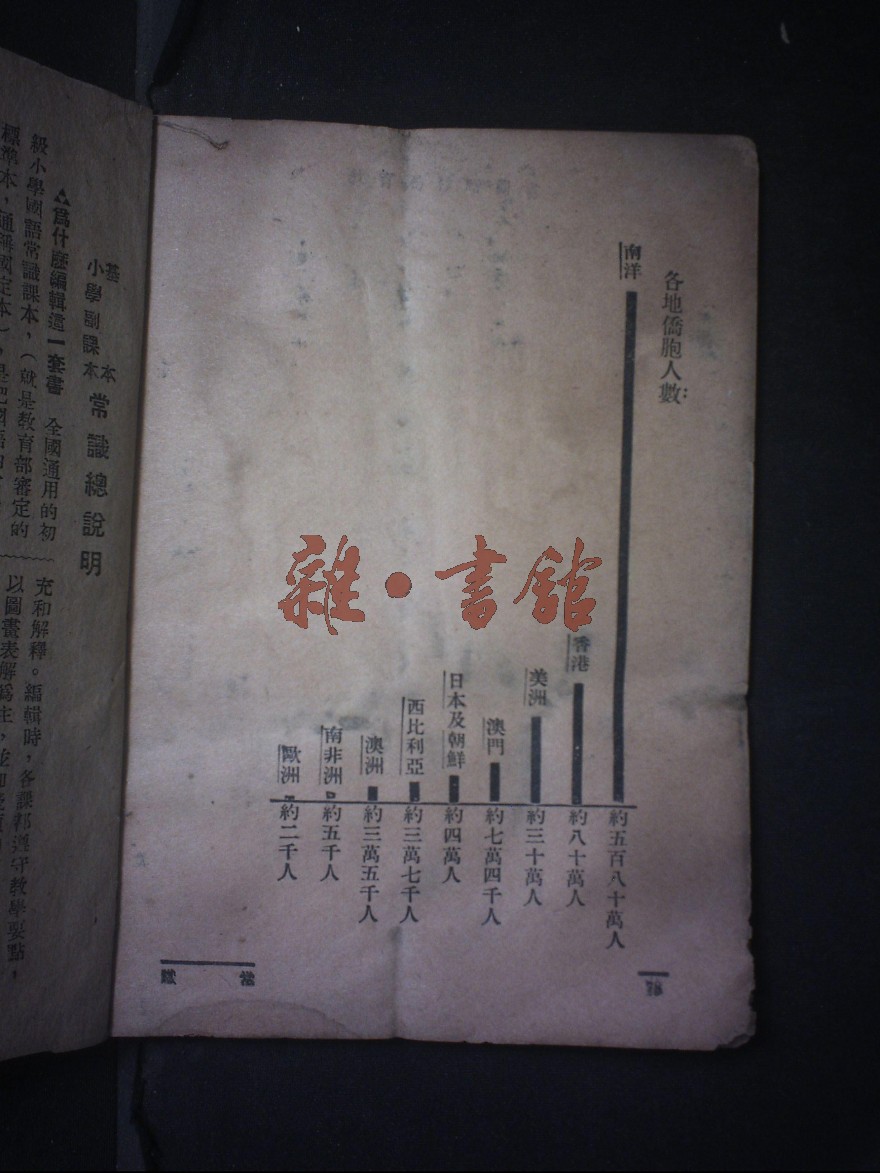 各地僑胞人數:
南洋 約五百八十萬人
香港 約八十萬人
美洲 約三十萬人
澳門 約七萬四千人
日本及朝鮮 約四萬人
西比利亞 約三萬七千人
澳洲 約三萬五千人
南非洲 約五千人
歐洲 約二千人
常識
雜·書館
基本
小學副課本
常識總說明
爲什麽編輯這一套書 全國通用的初
級小學國語常識課本,(就是教育部審定的
標準本,通稱國定本)
充和解釋。編輯時,各課都遵守教學要點,
以圖畫表解爲主,並